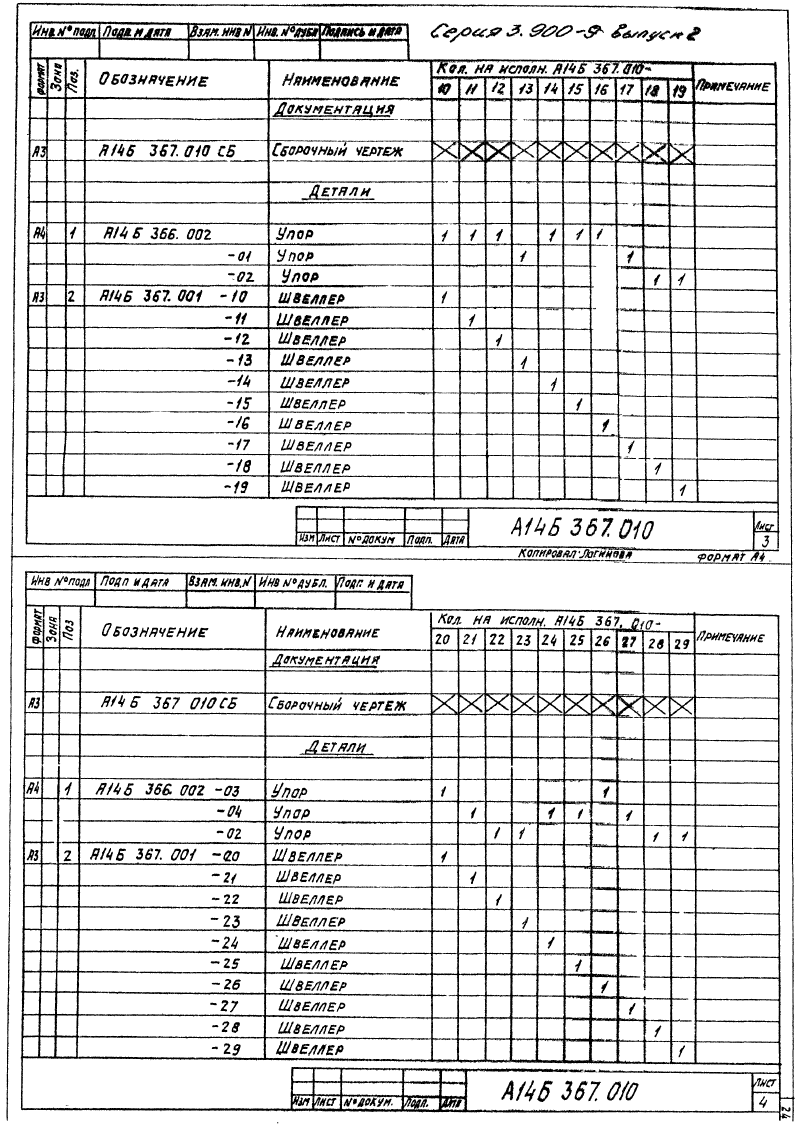 Серия 3.900-9 Выпуск 2
Инв. № подл. Подп. и дата Взам. инв. № Инв. № дубл. Подпись и дата
Формат Зона Поз. Обозначение Наименование Кол. на исполн. А14Б 367.010- Примечание
10 11 12 13 14 15 16 17 18 19
Документация
А3 А14Б 367.010 СБ Сборочный чертеж
Детали
А4 1 А14Б 366.002 Упор 1 1 1 1 1 1
-01 Упор 1 1
-02 Упор 1 1
А3 2 А14Б 367.001 -10 Швеллер 1
-11 Швеллер 1
-12 Швеллер 1
-13 Швеллер 1
-14 Швеллер 1
-15 Швеллер 1
-16 Швеллер 1
-17 Швеллер 1
-18 Швеллер 1
-19 Швеллер 1
Изм Лист № докум Подп. Дата А14Б 367.010 Лист 3
Копировал Логинова Формат А4
Инв № подл Подп и дата Взам. инв. № Инв № дубл. Подп. и дата
Формат Зона Поз Обозначение Наименование Кол. на исполн. А14Б 367. 010- Примечание
20 21 22 23 24 25 26 27 28 29
Документация
А3 А14Б 367 010 СБ Сборочный чертеж
Детали
А4 1 А14Б 366.002 -03 Упор 1 1
-04 Упор 1 1 1 1
-02 Упор 1 1 1 1
А3 2 А14Б 367.001 -20 Швеллер 1
-21 Швеллер 1
-22 Швеллер 1
-23 Швеллер 1
-24 Швеллер 1
-25 Швеллер 1
-26 Швеллер 1
-27 Швеллер 1
-28 Швеллер 1
-29 Швеллер 1
Изм Лист № докум. Подп. Дата А14Б 367.010 Лист 4
24